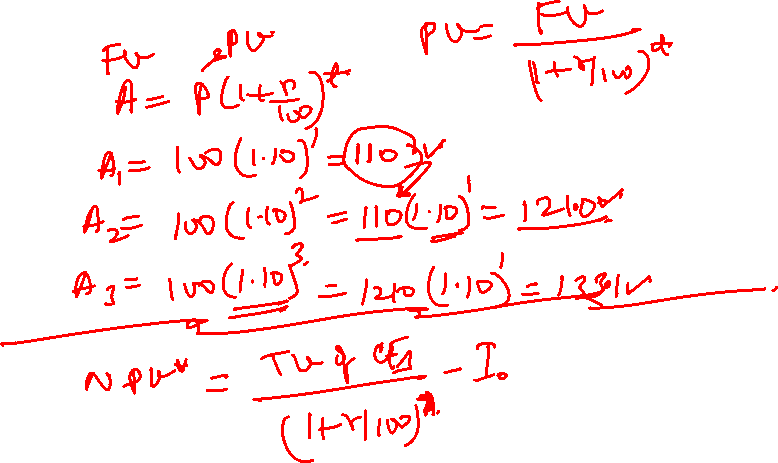 FV PV
A = P(1+r/100)^t
PV = FV/(1+r/100)^t
A₁ = 100(1.10)^1 = 110 ✓
A₂ = 100(1.10)^2 = 110(1.10)^1 = 121.0 ✓
A₃ = 100(1.10)^3 = 1210(1.10)^1 = 1331 ✓
NPV = TV of CFs/(1+r/100)^n - I₀